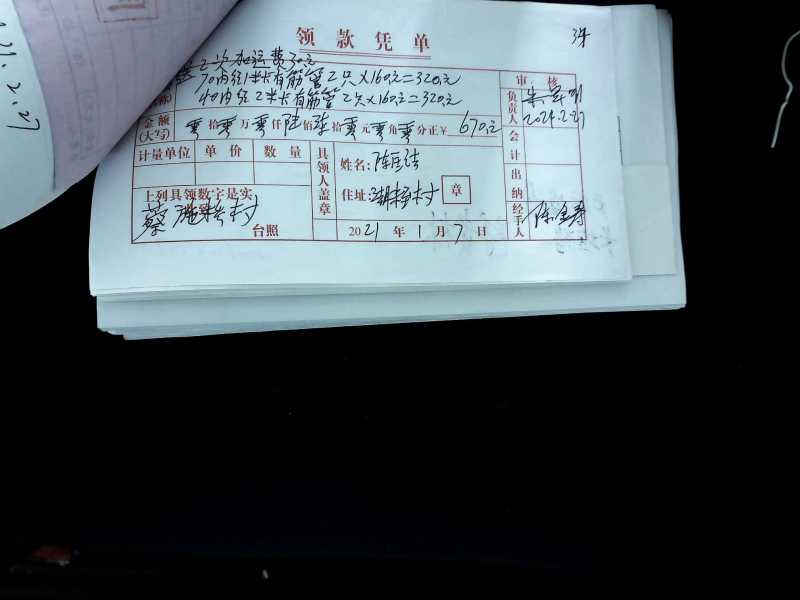 领款凭单
2次加运费30元
70内径1米长有筋管2只×160元=320元
40内径2米长有筋管2只×160元=320元
审核
负责人
2021.2.27
金额(大写) 零拾零万零仟陆佰柒拾零元零角零分正¥ 670元
计量单位 单价 数量
具领人盖章
姓名:陈
住址: 村
章
会计
出纳
上列具领数字是实
蔡 村
台照
2021年1月7日
经手人
陈金寿